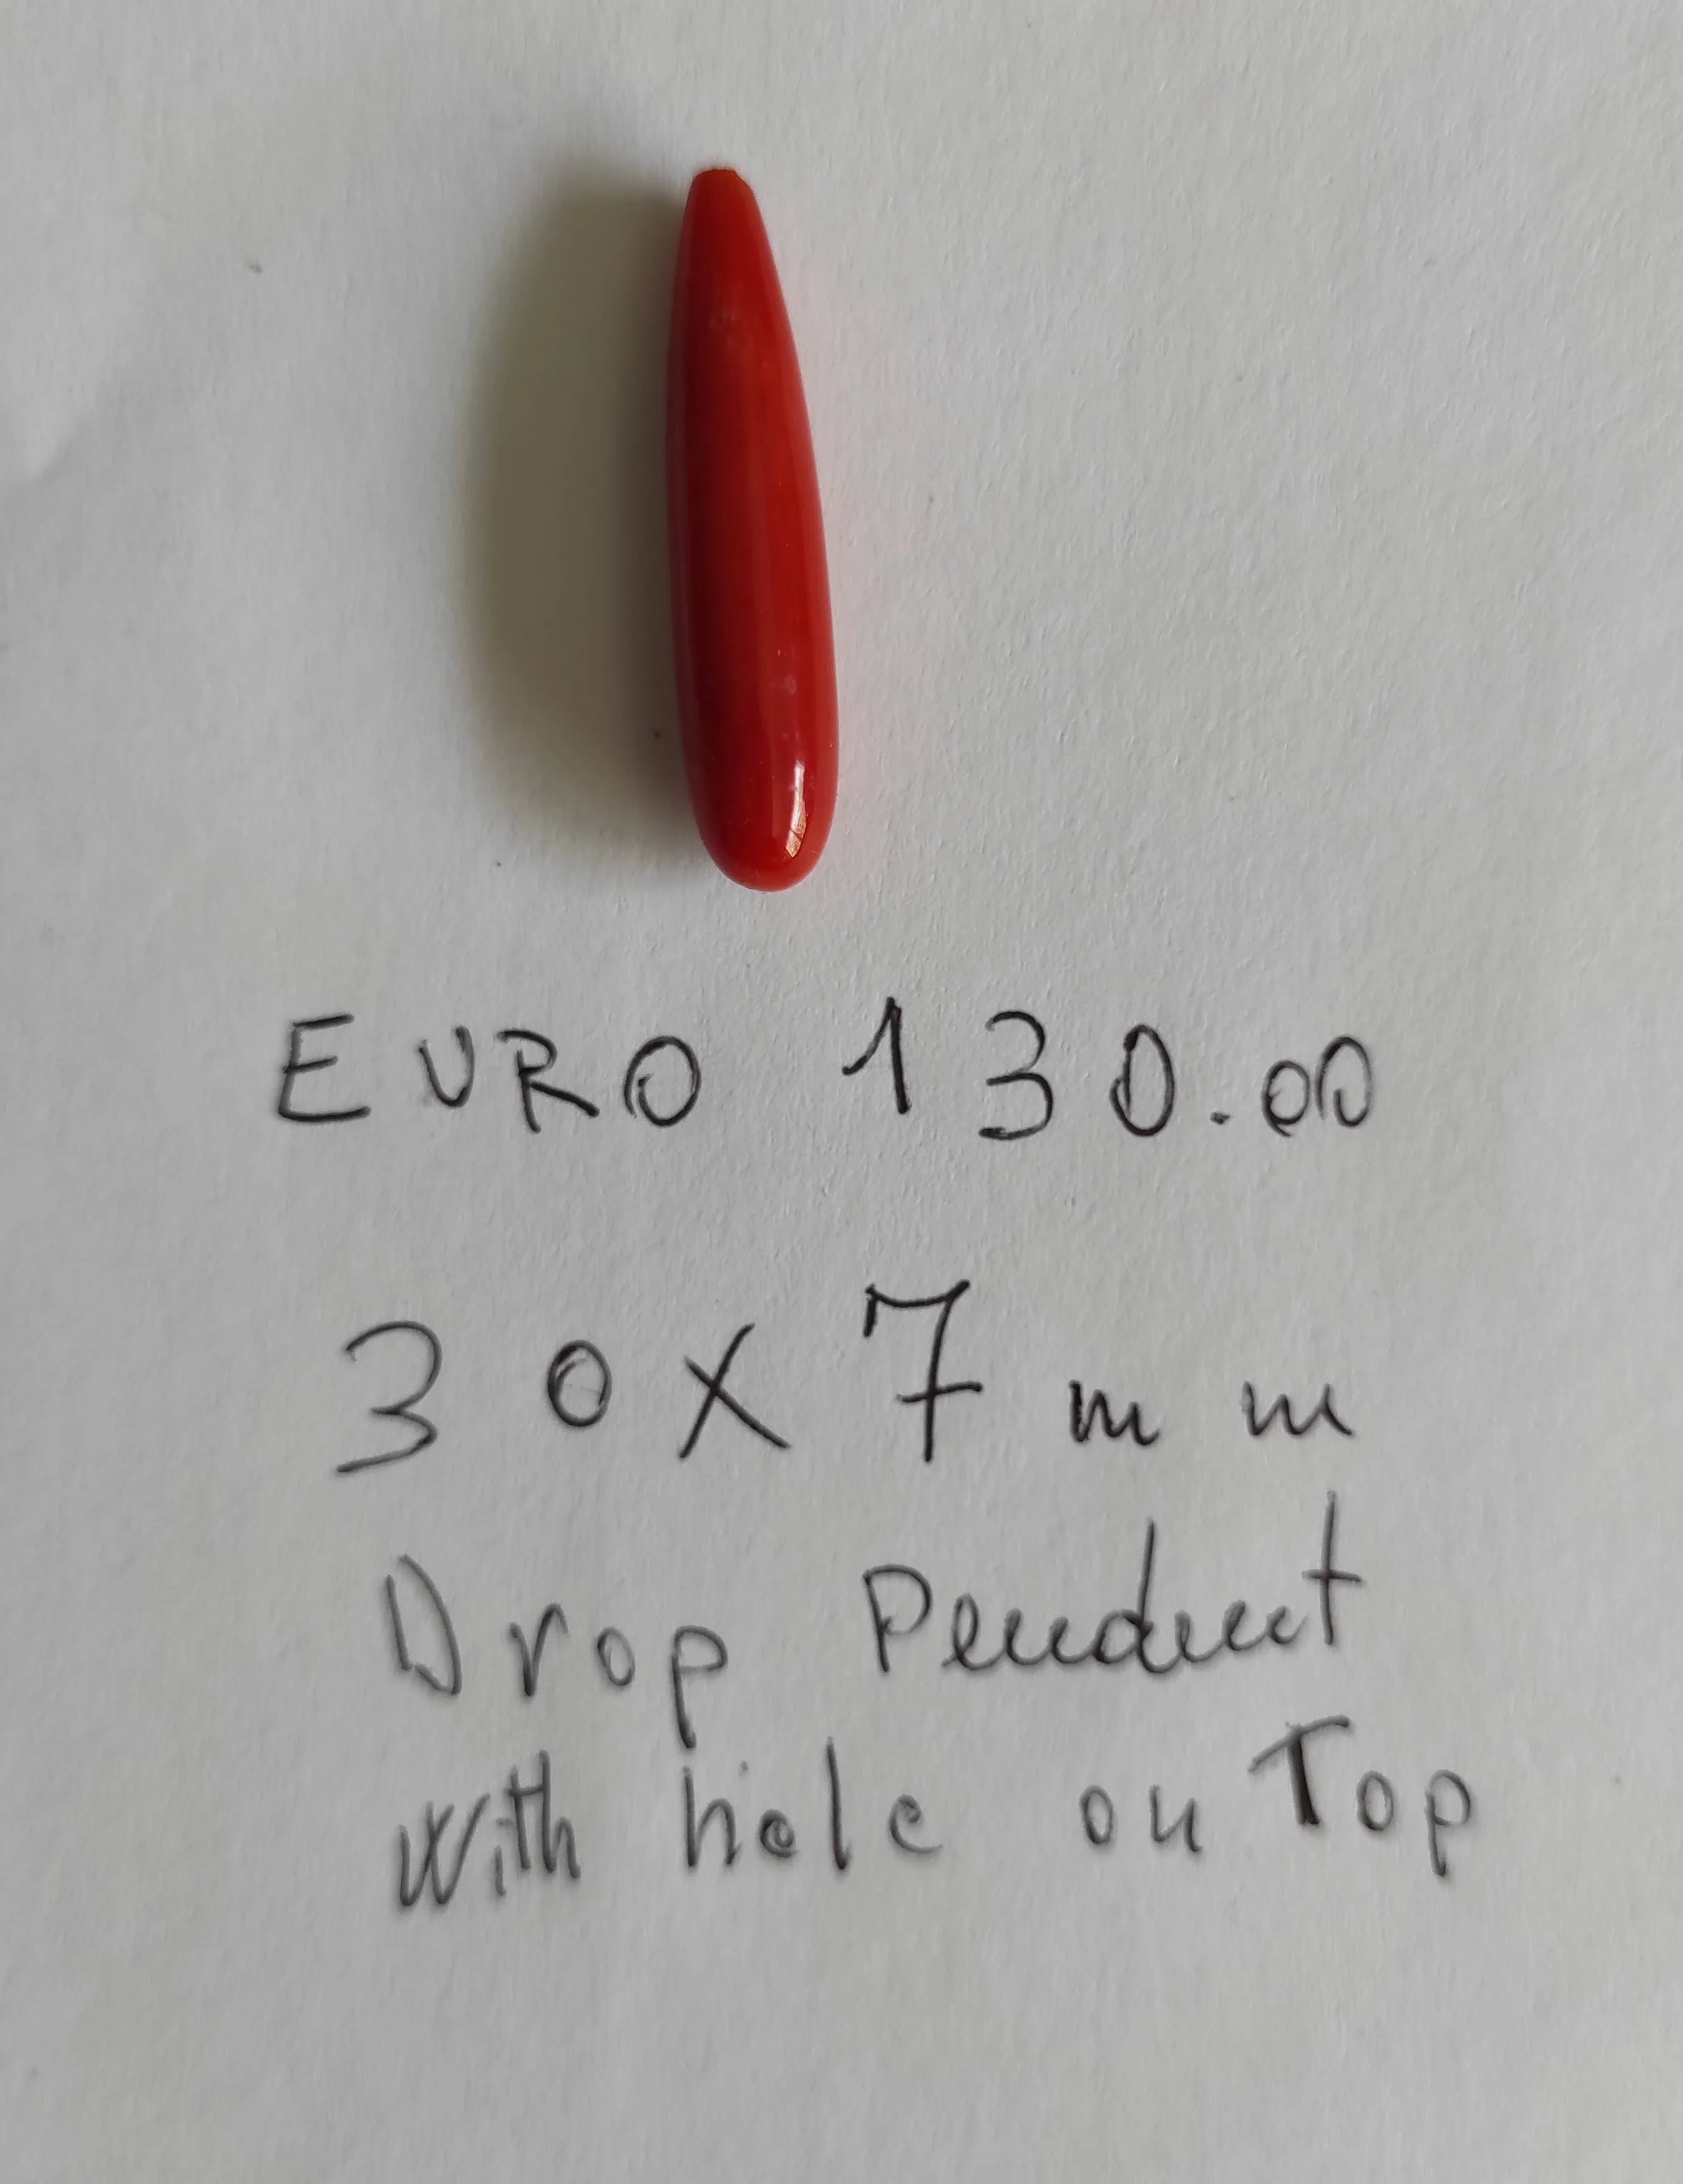 EURO 130.00
30X7mm
Drop Pendent
With hole on Top